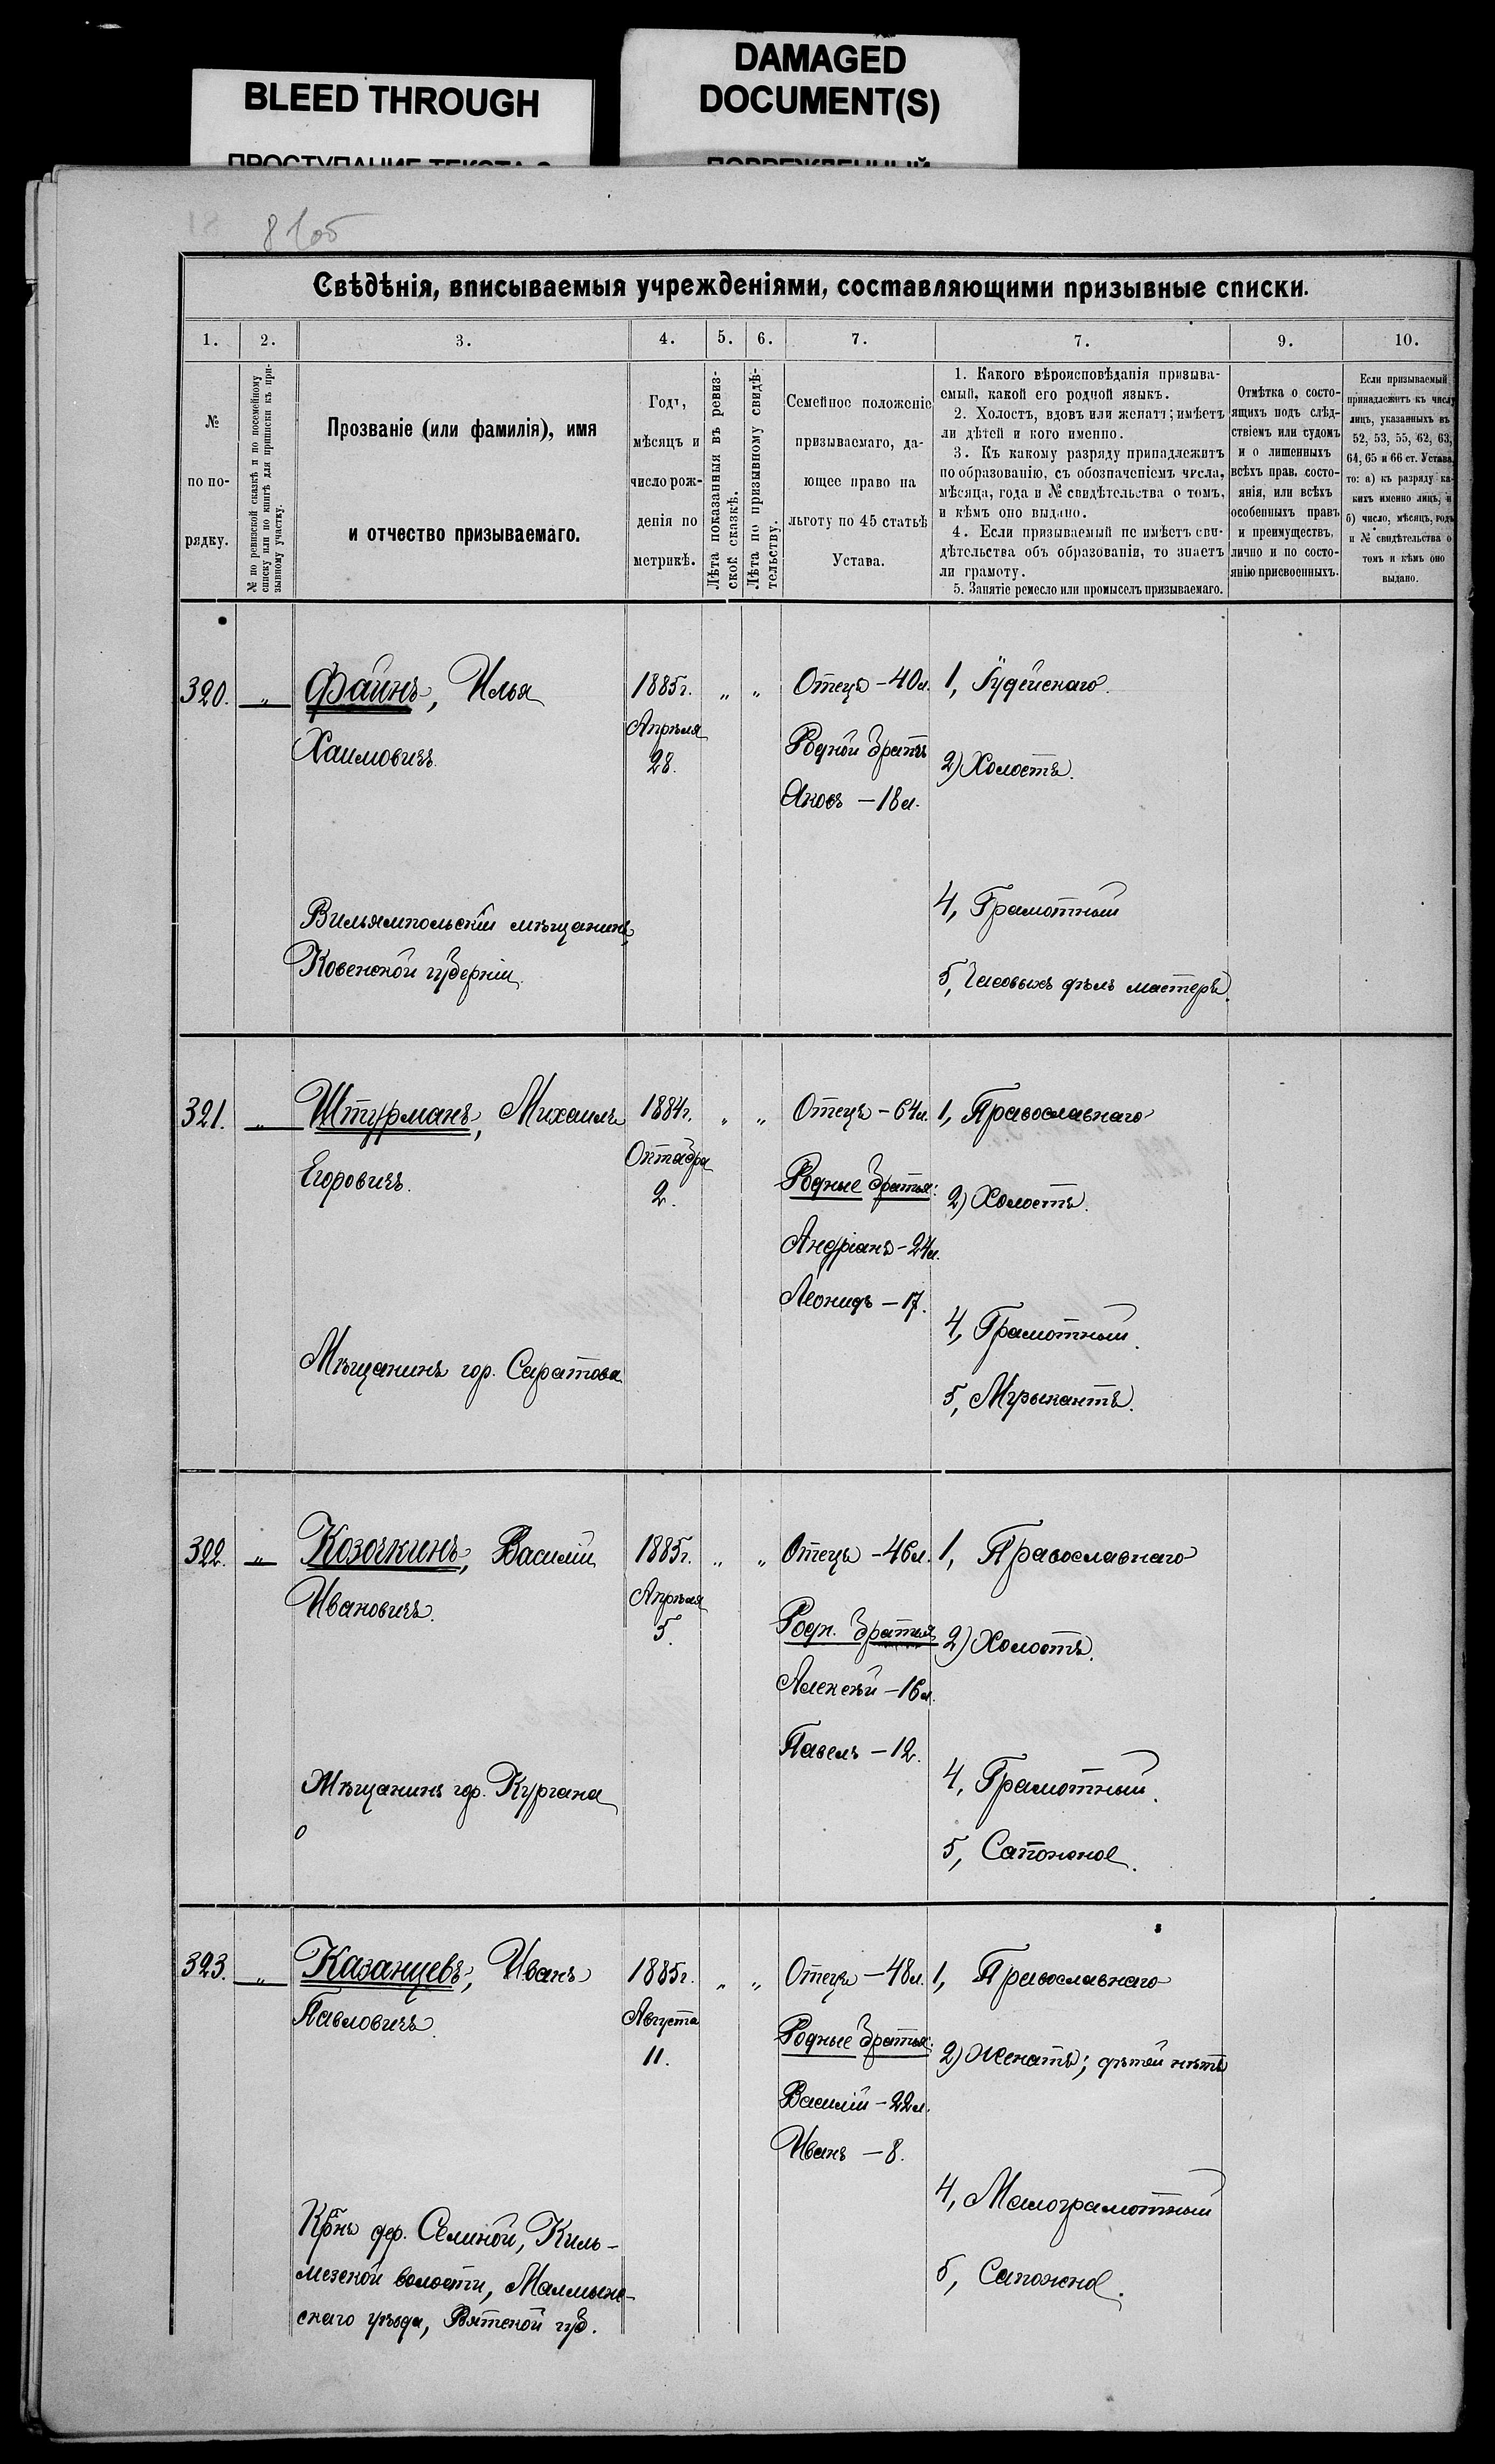 BLEED THROUGH
DAMAGED
DOCUMENT(S)
81об
Свѣдѣнія, вписываемыя учрежденіями, составляющими призывные списки.
1. 2. 3. 4. 5. 6. 7. 7. 9. 10.
№
по по-
рядку.
№ по ревизской сказкѣ и по посемейному
списку или по книгѣ для приписки къ при-
зывному участку.
Прозваніе (или фамилія), имя
и отчество призываемаго.
Годъ,
мѣсяцъ и
число рож-
денія по
метрикѣ.
Лѣта показанныя въ ревиз-
ской сказкѣ.
Лѣта по призывному свидѣ-
тельству.
Семейное положеніе
призываемаго, да-
ющее право на
льготу по 45 статьѣ
Устава.
1. Какого вѣроисповѣданія призыва-
емый, какой его родной языкъ.
2. Холостъ, вдовъ или женатъ; имѣетъ
ли дѣтей и кого именно.
3. Къ какому разряду принадлежитъ
по образованію, съ обозначеніемъ числа,
мѣсяца, года и № свидѣтельства о томъ,
и кѣмъ оно выдано.
4. Если призываемый не имѣетъ сви-
дѣтельства объ образованіи, то знаетъ
ли грамоту.
5. Занятіе ремесло или промыселъ призываемаго.
Отмѣтка о состо-
ящихъ подъ слѣд-
ствіемъ или судомъ
и о лишенныхъ
всѣхъ прав. состо-
янія, или всѣхъ
особенныхъ правъ
и преимуществъ,
лично и по состо-
янію присвоенныхъ.
Если призываемый
принадлежитъ къ числу
лицъ, указанныхъ въ
52, 53, 55, 62, 63,
64, 65 и 66 ст. Устава,
то: а) къ разряду ка-
кихъ именно лицъ, и
б) число, мѣсяцъ, годъ
и № свидѣтельства о
томъ и кѣмъ оно
выдано.
320. " Файнъ, Илья 1885г. " " Отецъ – 40л. 1, Іудейскаго.
Хаимовичъ. Апрѣля Родной братъ 2) Холостъ.
28. Яковъ – 18л.
4, Грамотный
Вильямпольскій мѣщанинъ,
Ковенской губерніи. 5, Часовыхъ дѣлъ мастеръ.
321. " Штурманъ, Михаилъ 1884г. " " Отецъ – 64л. 1, Православнаго
Егоровичъ. Октября Родные братья: 2) Холостъ.
2. Андріанъ – 24л.
Леонидъ – 17. 4, Грамотный.
Мѣщанинъ гор. Саратова. 5, Музыкантъ.
322. " Козочкинъ, Василій 1885г. " " Отецъ – 46л. 1, Православнаго
Ивановичъ. Апрѣля Родн. братья 2) Холостъ.
5. Алексѣй – 16л.
Павелъ – 12. 4, Грамотный.
Мѣщанинъ гор. Кургана
5, Сапожное.
323. " Казанцевъ, Иванъ 1885г. " " Отецъ – 48л. 1, Православнаго
Павловичъ. Августа Родные братья: 2) Женатъ; дѣтей нѣтъ
11. Василій – 22л.
Иванъ – 8.
4, Малограмотный
Крнъ дер. Селиной, Киль-
мезской волости, Малмыж- 5, Сапожное.
скаго уѣзда, Вятской губ.